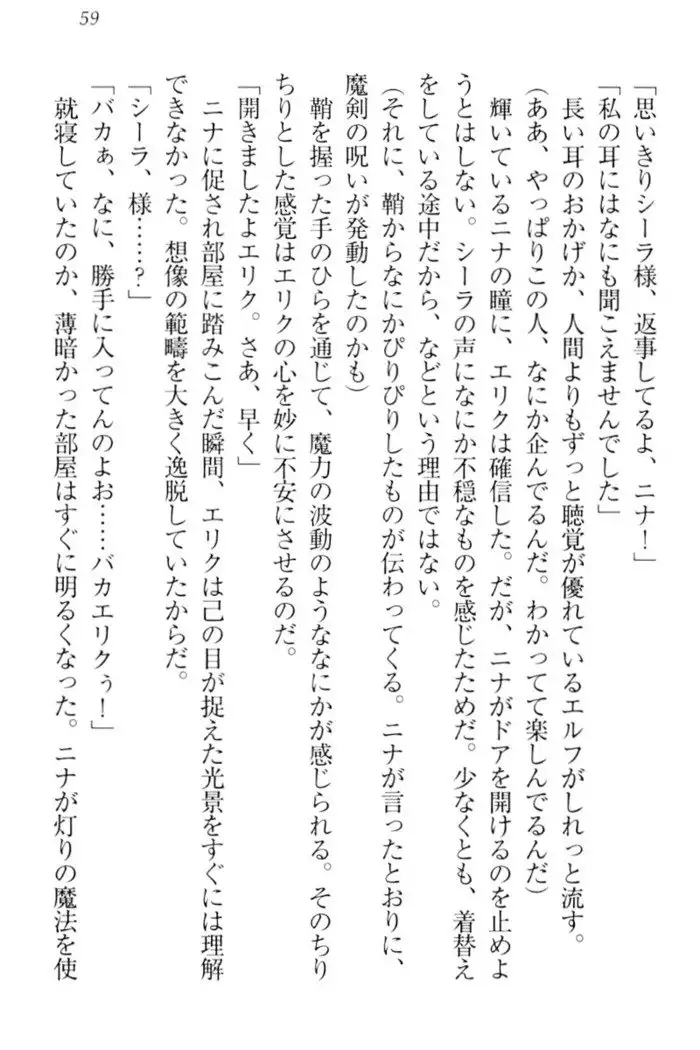 59
「思いきりシーラ様、返事してるよ、ニナ！」
「私の耳にはなにも聞こえませんでした」
長い耳のおかげか、人間よりもずっと聴覚が優れているエルフがしれっと流す。
(ああ、やっぱりこの人、なにか企んでるんだ。わかってて楽しんでるんだ)
輝いているニナの瞳に、エリクは確信した。だが、ニナがドアを開けるのを止めよ
うとはしない。シーラの声になにか不穏なものを感じたためだ。少なくとも、着替え
をしている途中だから、などという理由ではない。
(それに、鞘からなにかぴりぴりしたものが伝わってくる。ニナが言ったとおりに、
魔剣の呪いが発動したのかも)
鞘を握った手のひらを通じて、魔力の波動のようななにかが感じられる。そのちり
ちりとした感覚はエリクの心を妙に不安にさせるのだ。
「開きましたよエリク。さあ、早く」
ニナに促され部屋に踏みこんだ瞬間、エリクは己の目が捉えた光景をすぐには理解
できなかった。想像の範疇を大きく逸脱していたからだ。
「シーラ、様……？」
「バカぁ、なに、勝手に入ってんのよお……バカエリクぅ！」
就寝していたのか、薄暗かった部屋はすぐに明るくなった。ニナが灯りの魔法を使